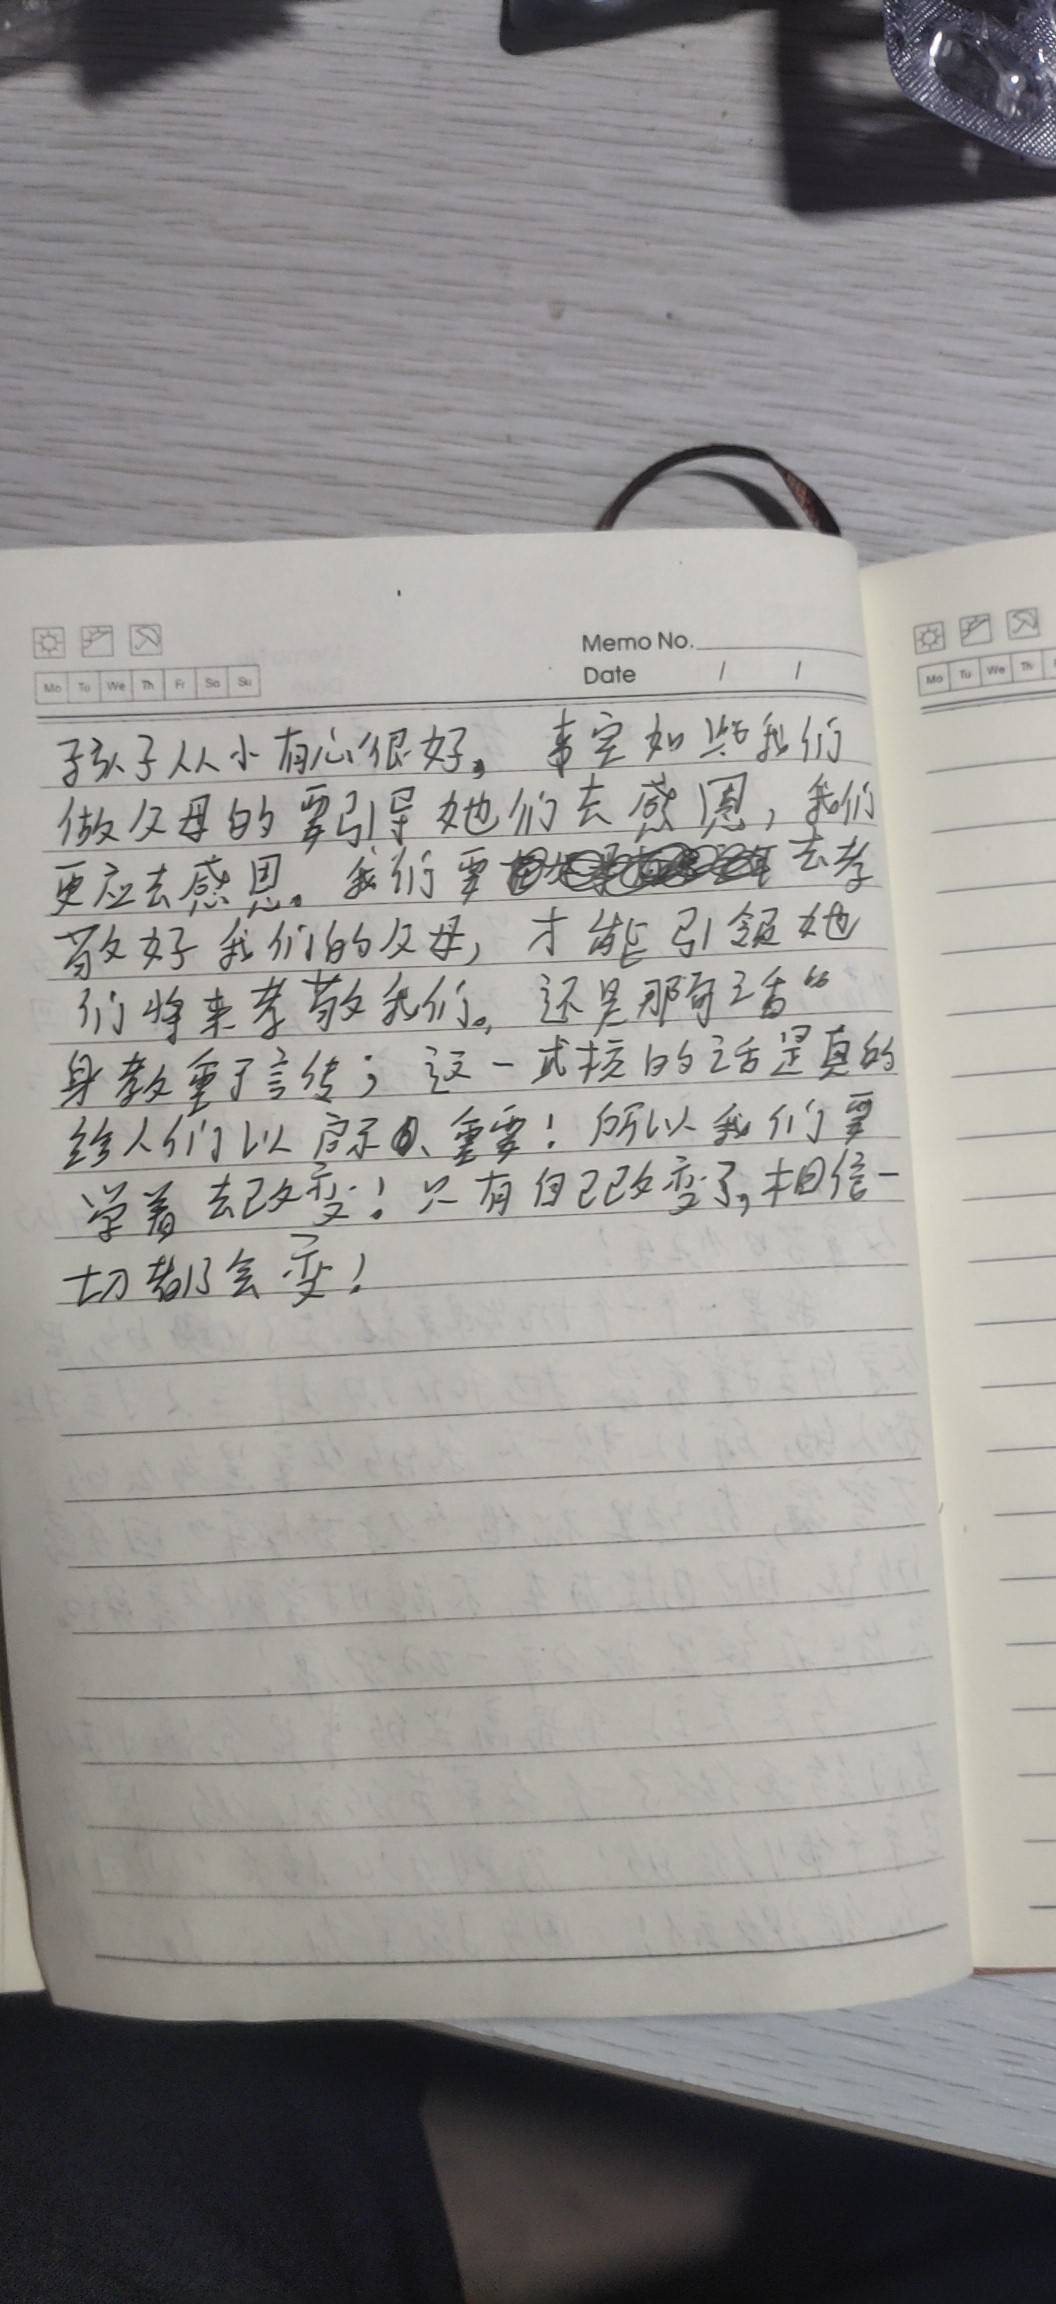 Memo No.
Date / /
Mo Tu We Th Fr Sa Su
孩子从小有心很好。事实如此我们
做父母的要引导她们去感恩，我们
更应去感恩。我们要去孝
敬好我们的父母，才能引领她
们将来孝敬我们。还是那句话“
身教重于言传；这一式样的话是真的
给人们以启示、重要！所以我们要
学着去改变！只有自己改变了，相信一
切都会变！
Mo Tu We Th